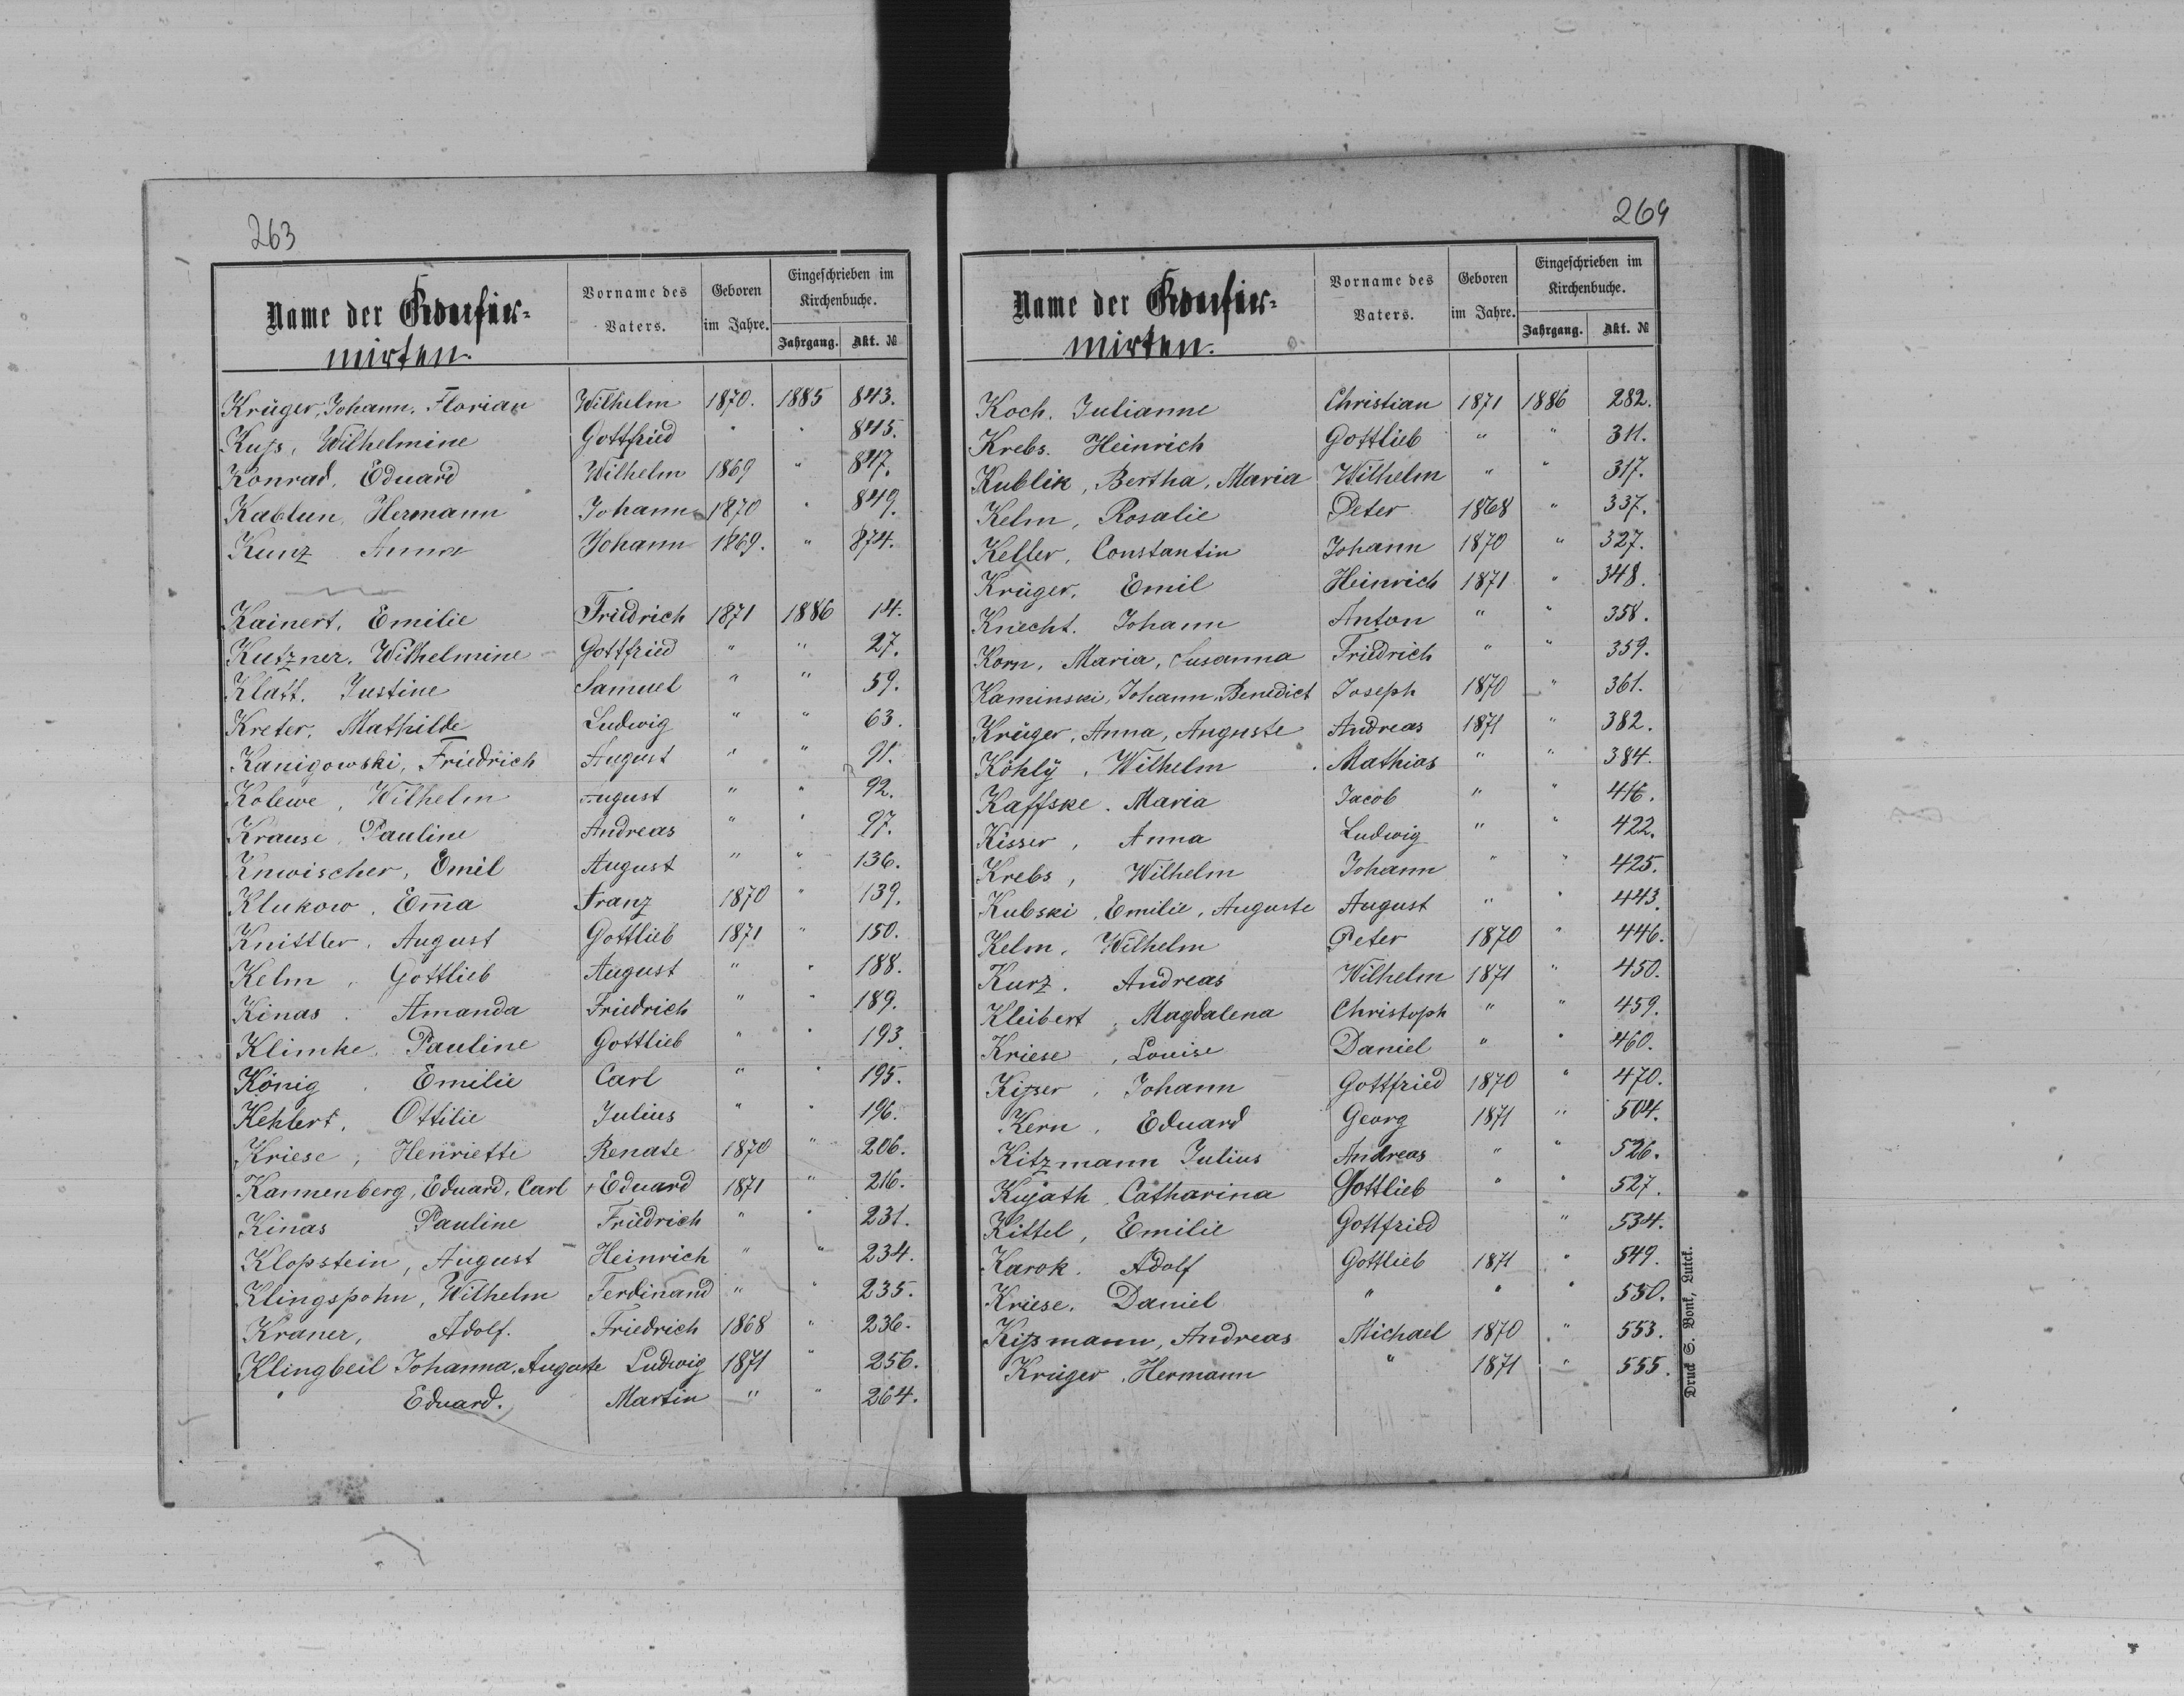 263
Name der Konfir-
mirten.
Vorname des
Vaters.
Geboren
im Jahre.
Eingeschrieben im
Kirchenbuche.
Jahrgang. Akt. №
Krüger, Johann, Florian Wilhelm 1870. 1885 843.
Kuss, Wilhelmine Gottfried " " 845.
Konrad, Eduard Wilhelm 1869 " 847.
Kablun, Hermann Johann 1870 " 849.
Kunz Anna Johann 1869. " 874.
Kainert, Emilie Friedrich 1871 1886 14.
Kutzner, Wilhelmine Gottfried " " 27.
Klatt, Justine Samuel " " 59.
Kreter, Mathilde Ludwig " " 63.
Kanigowski, Friedrich August " " 91.
Kolewe, Wilhelm August " " 92.
Krause, Pauline Andreas " " 97.
Knwischer, Emil August " " 136.
Klukow, Em̄a Franz 1870 " 139.
Knittler, August Gottlieb 1871 " 150.
Kelm, Gottlieb August " " 188.
Kinas, Amanda Friedrich " " 189.
Klimke, Pauline Gottlieb " " 193.
König, Emilie Carl " " 195.
Kehlert, Ottilie Julius " " 196.
Kriese, Henriette Renate 1870 " 206.
Kannenberg, Eduard, Carl Eduard 1871 " 216.
Kinas Pauline Friedrich " " 231.
Klopstein, August Heinrich " " 234.
Klingspohn, Wilhelm Ferdinand " " 235.
Kraner, Adolf. Friedrich 1868 " 236.
Klingbeil Johanna, Auguste Ludwig 1871 " 256.
" Eduard. Martin " " 264.
264
Name der Konfir-
mirten.
Vorname des
Vaters.
Geboren
im Jahre.
Eingeschrieben im
Kirchenbuche.
Jahrgang. Akt. №
Koch, Julianne Christian 1871 1886 282.
Krebs. Heinrich Gottlieb " " 311.
Kublik, Bertha, Maria Wilhelm " " 317.
Kelm, Rosalie Peter 1868 " 337.
Keller, Constantin Johann 1870 " 327.
Krüger, Emil Heinrich 1871 " 348.
Knecht. Johann Anton " " 358.
Korn, Maria, Susanna Friedrich " " 359.
Kaminski, Johann, Benedict Joseph 1870 " 361.
Krüger, Anna, Auguste Andreas 1871 " 382.
Köhly, Wilhelm Mathias " " 384.
Kaffske. Maria Jacob " " 416.
Kisser, Anna Ludwig " " 422.
Krebs, Wilhelm Johann " " 425.
Kubski, Emilie, Auguste August " " 443.
Kelm, Wilhelm Peter 1870 " 446.
Kurz. Andreas Wilhelm 1871 " 450.
Kleibert, Magdalena Christoph " " 459.
Kriese, Louise Daniel " " 460.
Kisser, Johann Gottfried 1870 " 470.
Kern, Eduard Georg 1871 " 504.
Kitzmann Julius Andreas " " 526.
Kujath, Catharina Gottlieb " " 527.
Kittel, Emilie Gottfried " 534.
Karok. Adolf Gottlieb 1871 " 549.
Kriese, Daniel " " " 550.
Kissmann, Andreas Michael 1870 " 553.
Krüger, Hermann " 1871 " 555.
Druck S. Bonk, Lutck.